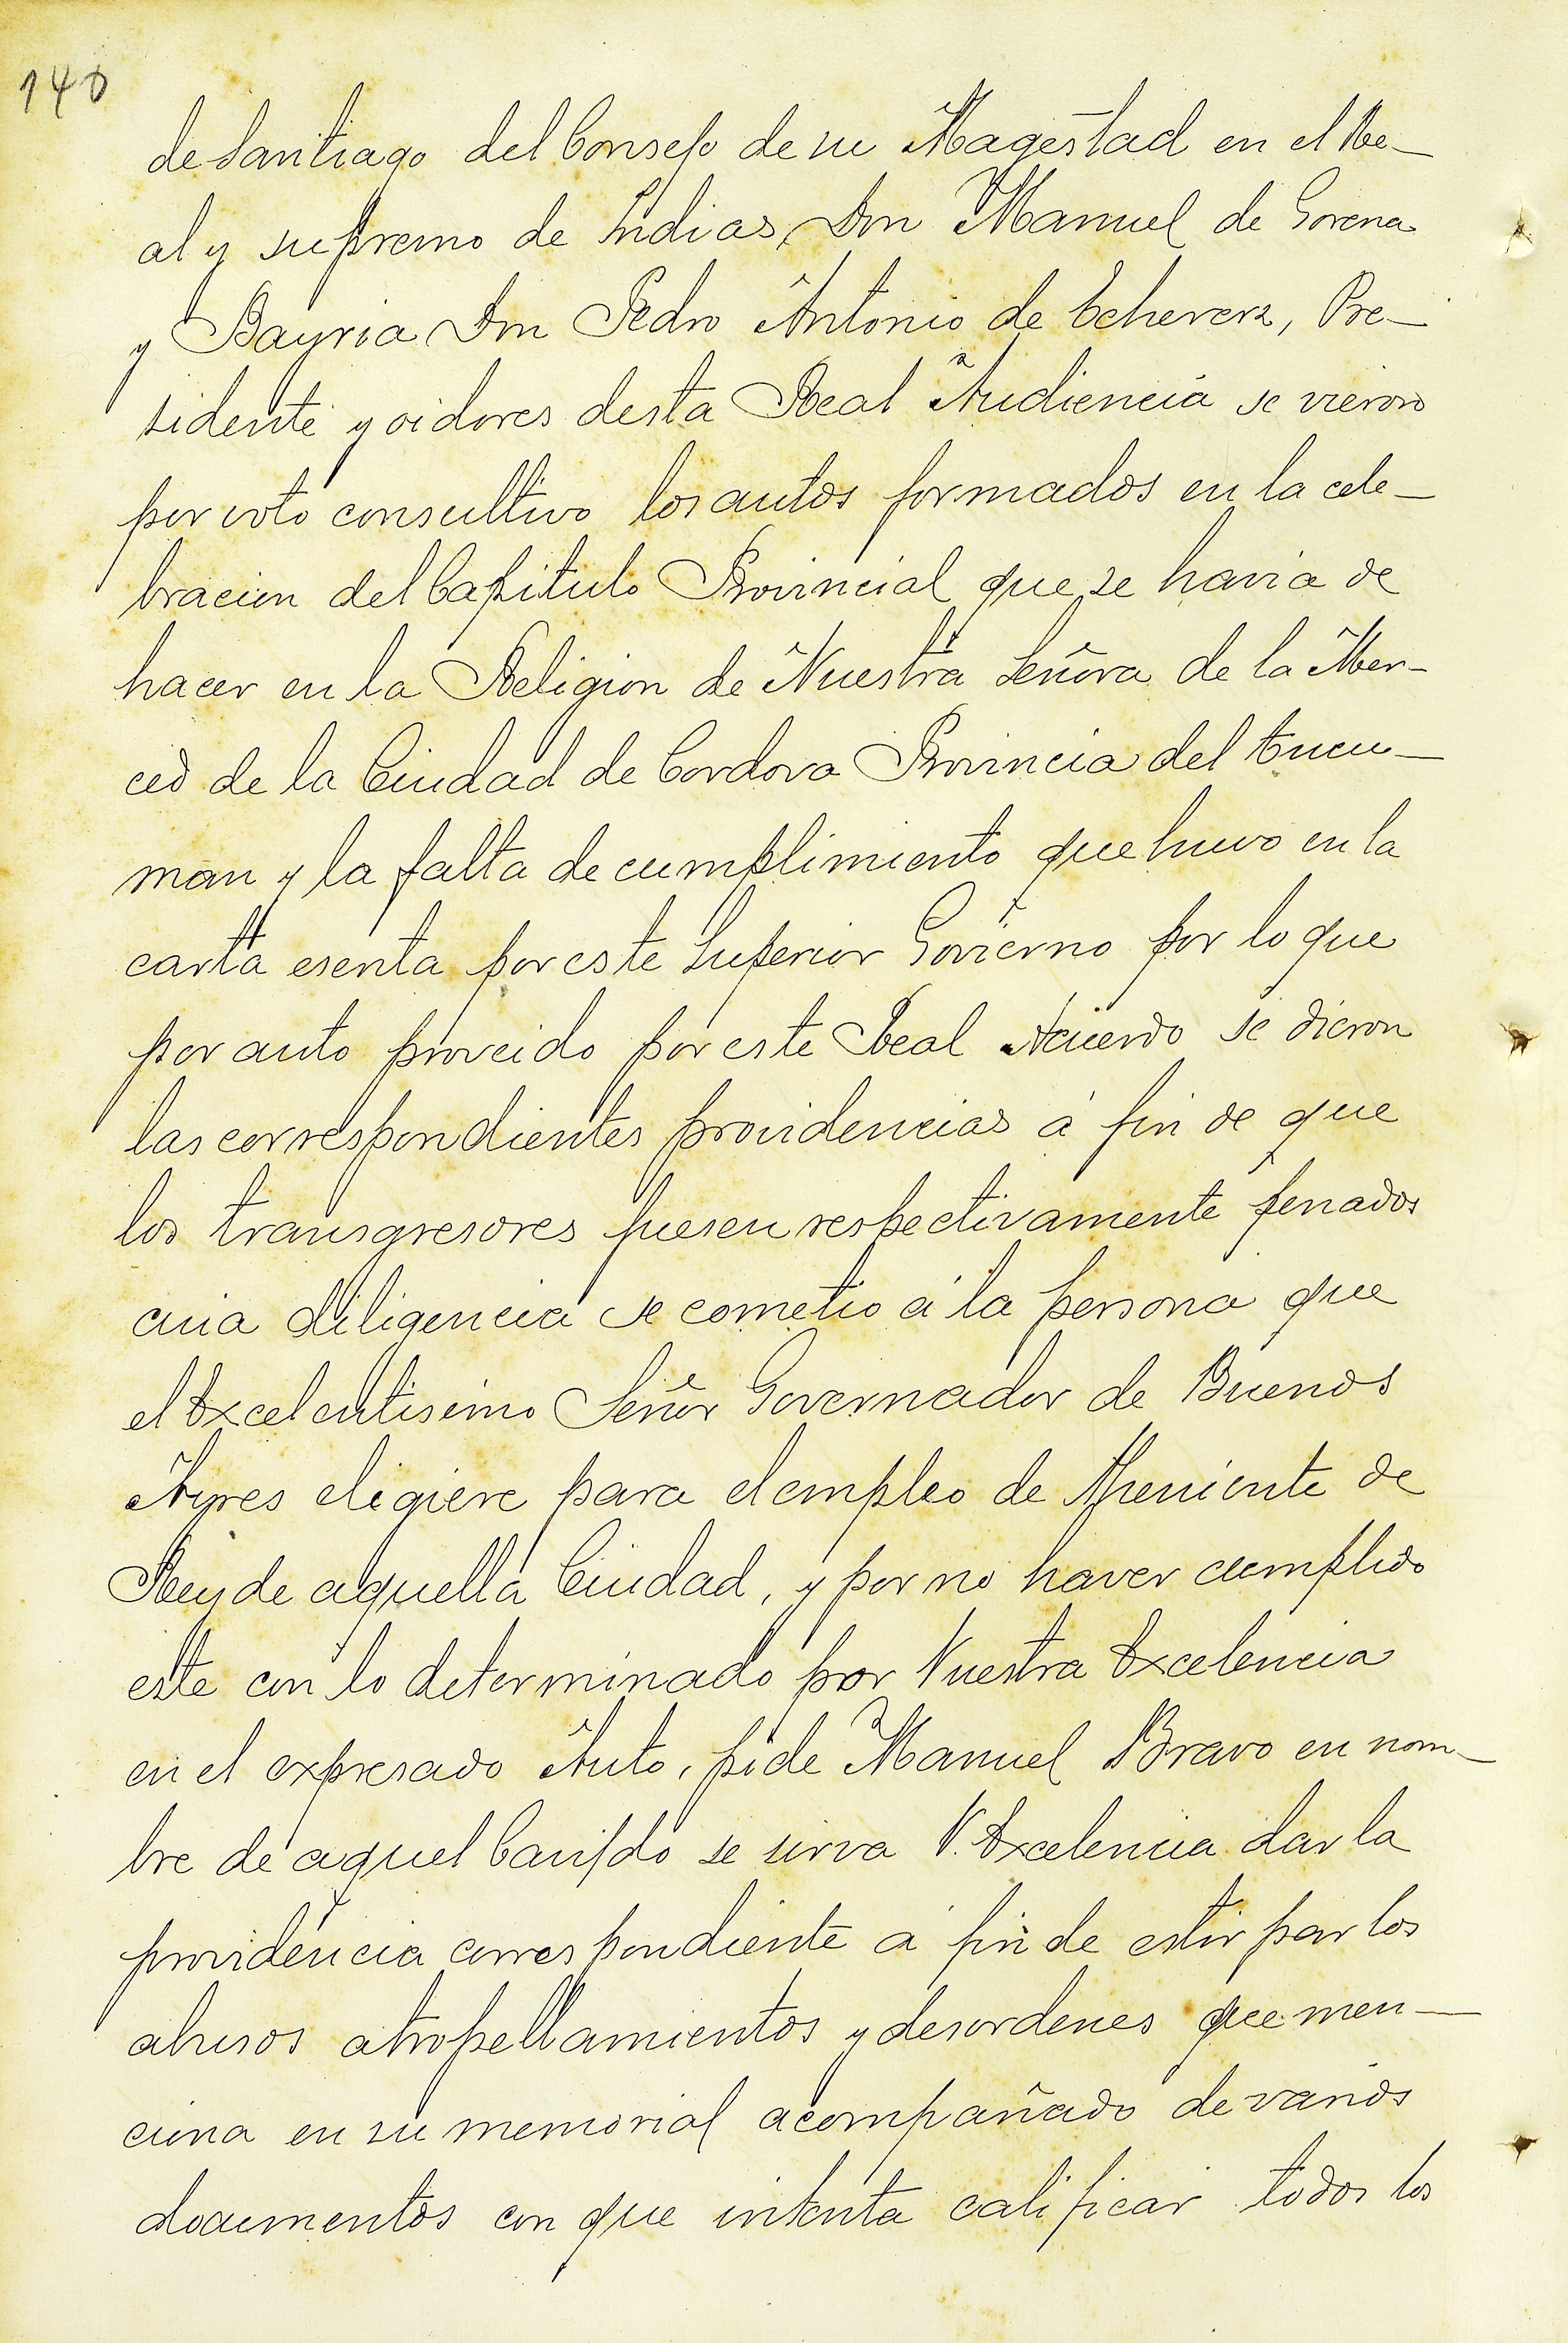 140
de Santiago del Consejo de su Magestad en el Re-
al y supremo de Indias, Don Manuel de Gorena
y Bayria Don Pedro Antonio de Echeverz, Pre-
sidente y oidores desta Real Audiencia se vieron
por voto consultivo los autos formados en la cele-
bracion del Capitulo Provincial que se havia de
hacer en la Religion de Nuestra Señora de la Mer-
ced de la Ciudad de Cordova Provincia del tucu-
man y la falta de cumplimiento que huvo en la
carta escrita por este Superior Govierno por lo que
por auto proveido por este Real Acuerdo se dieron
las correspondientes providencias á fin de que
los transgresores fuesen respectivamente penados
cuia diligencia se cometio á la persona que
el Excelentisimo Señor Governador de Buenos
Ayres eligiere para el empleo de Theniente de
Rey de aquella Ciudad, y por no haver cumplido
este con lo determinado por Vuestra Excelencia
en el expresado Auto, pide Manuel Bravo en nom-
bre de aquel Cavildo se sirva V. Excelencia dar la
providencia correspondiente á fin de estirpar los
abusos atropellamientos y desordenes que men-
ciona en su memorial acompañado de varios
documentos con que intenta calificar todos los